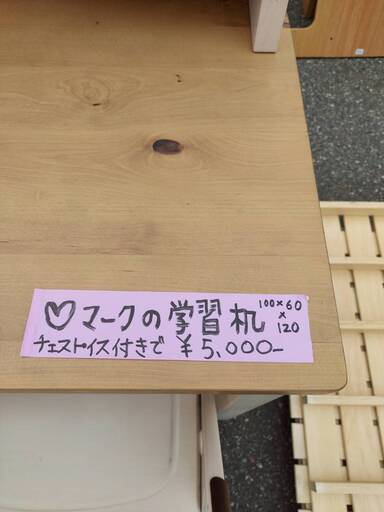 ♡マークの学習机 100×60×120
チェストイス付きで ¥5,000-